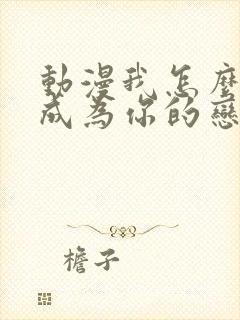 動漫我怎麼
成為你的戀
檐子